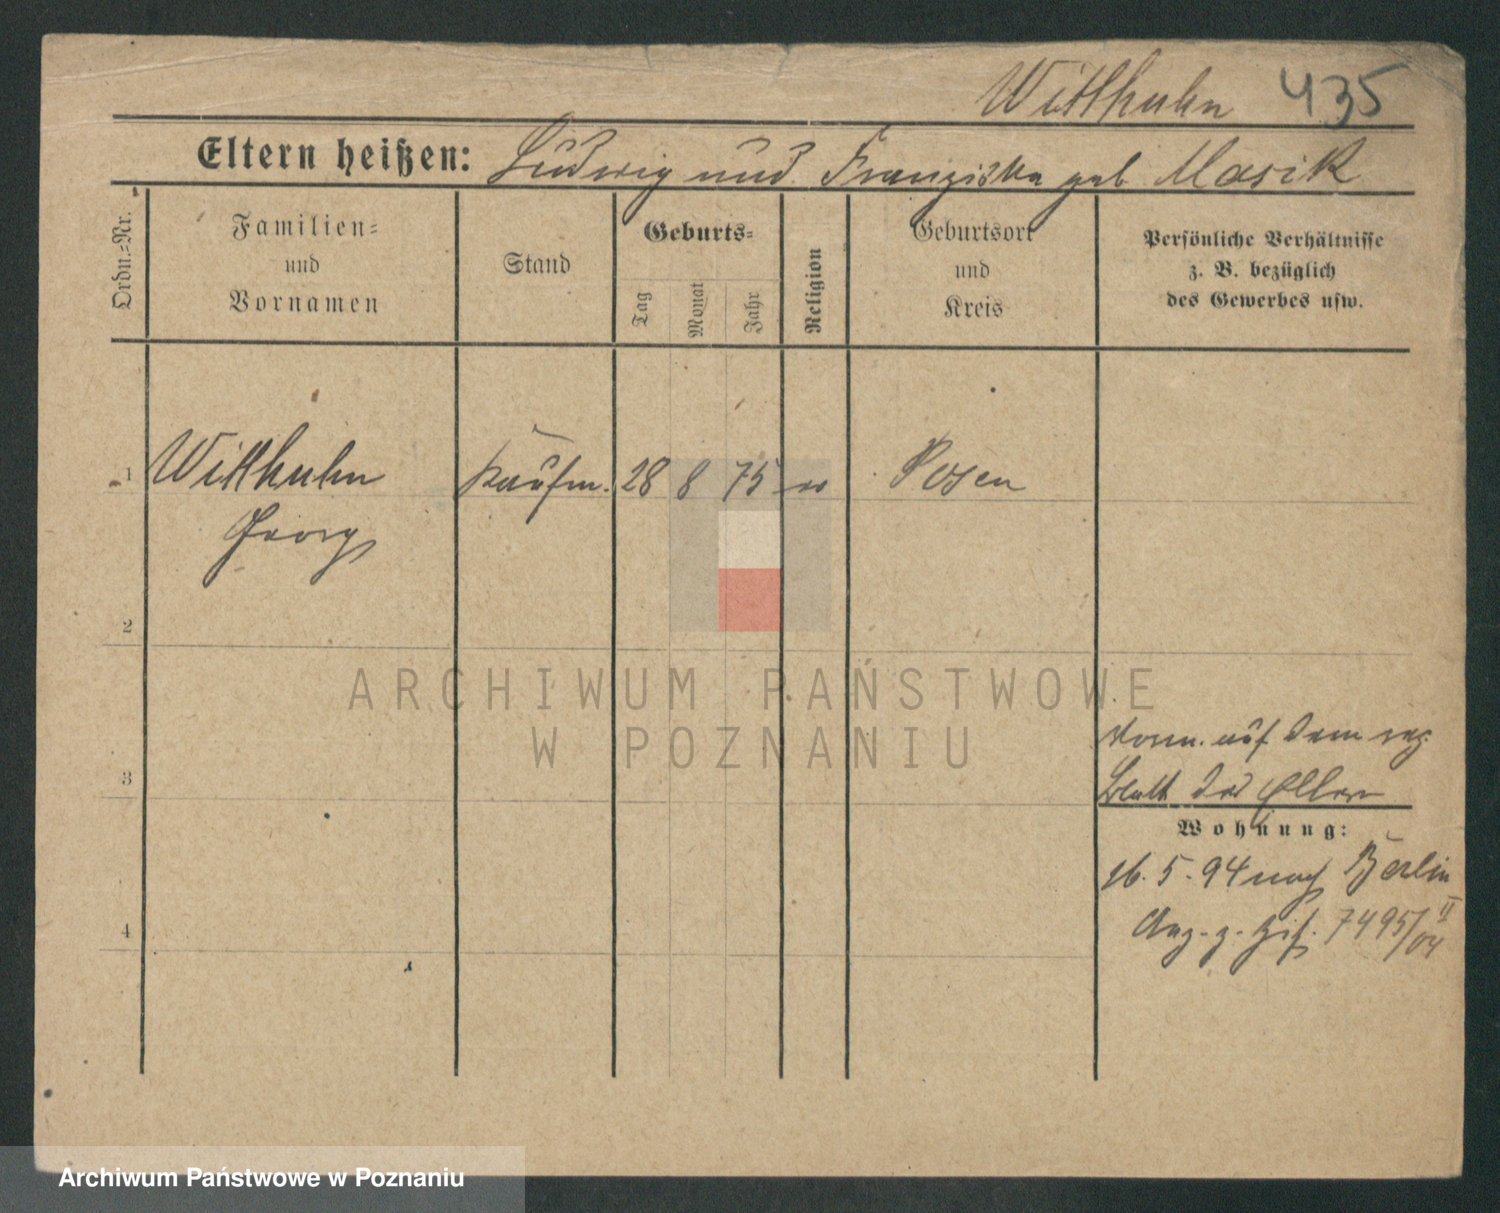 Witthuhn 435
Eltern heißen: Ludwig und Franziska geb Masik
Ordn.-Nr.
Familien-
und
Vornamen
Stand
Geburts-
Tag
Monat
Jahr
Religion
Geburtsort
und
Kreis
Persönliche Verhältnisse
z. B. bezüglich
des Gewerbes usw.
1 Witthuhn Kaufm. 28 8 75 Posen
Georg
2
ARCHIWUM PAŃSTWOWE
W POZNANIU
vorm. auf dem reg.
3 Blatt der Eltern
Wohnung:
26. 5. 94 nach Berlin
4 Ang. z. 7495/04 II
Archiwum Państwowe w Poznaniu